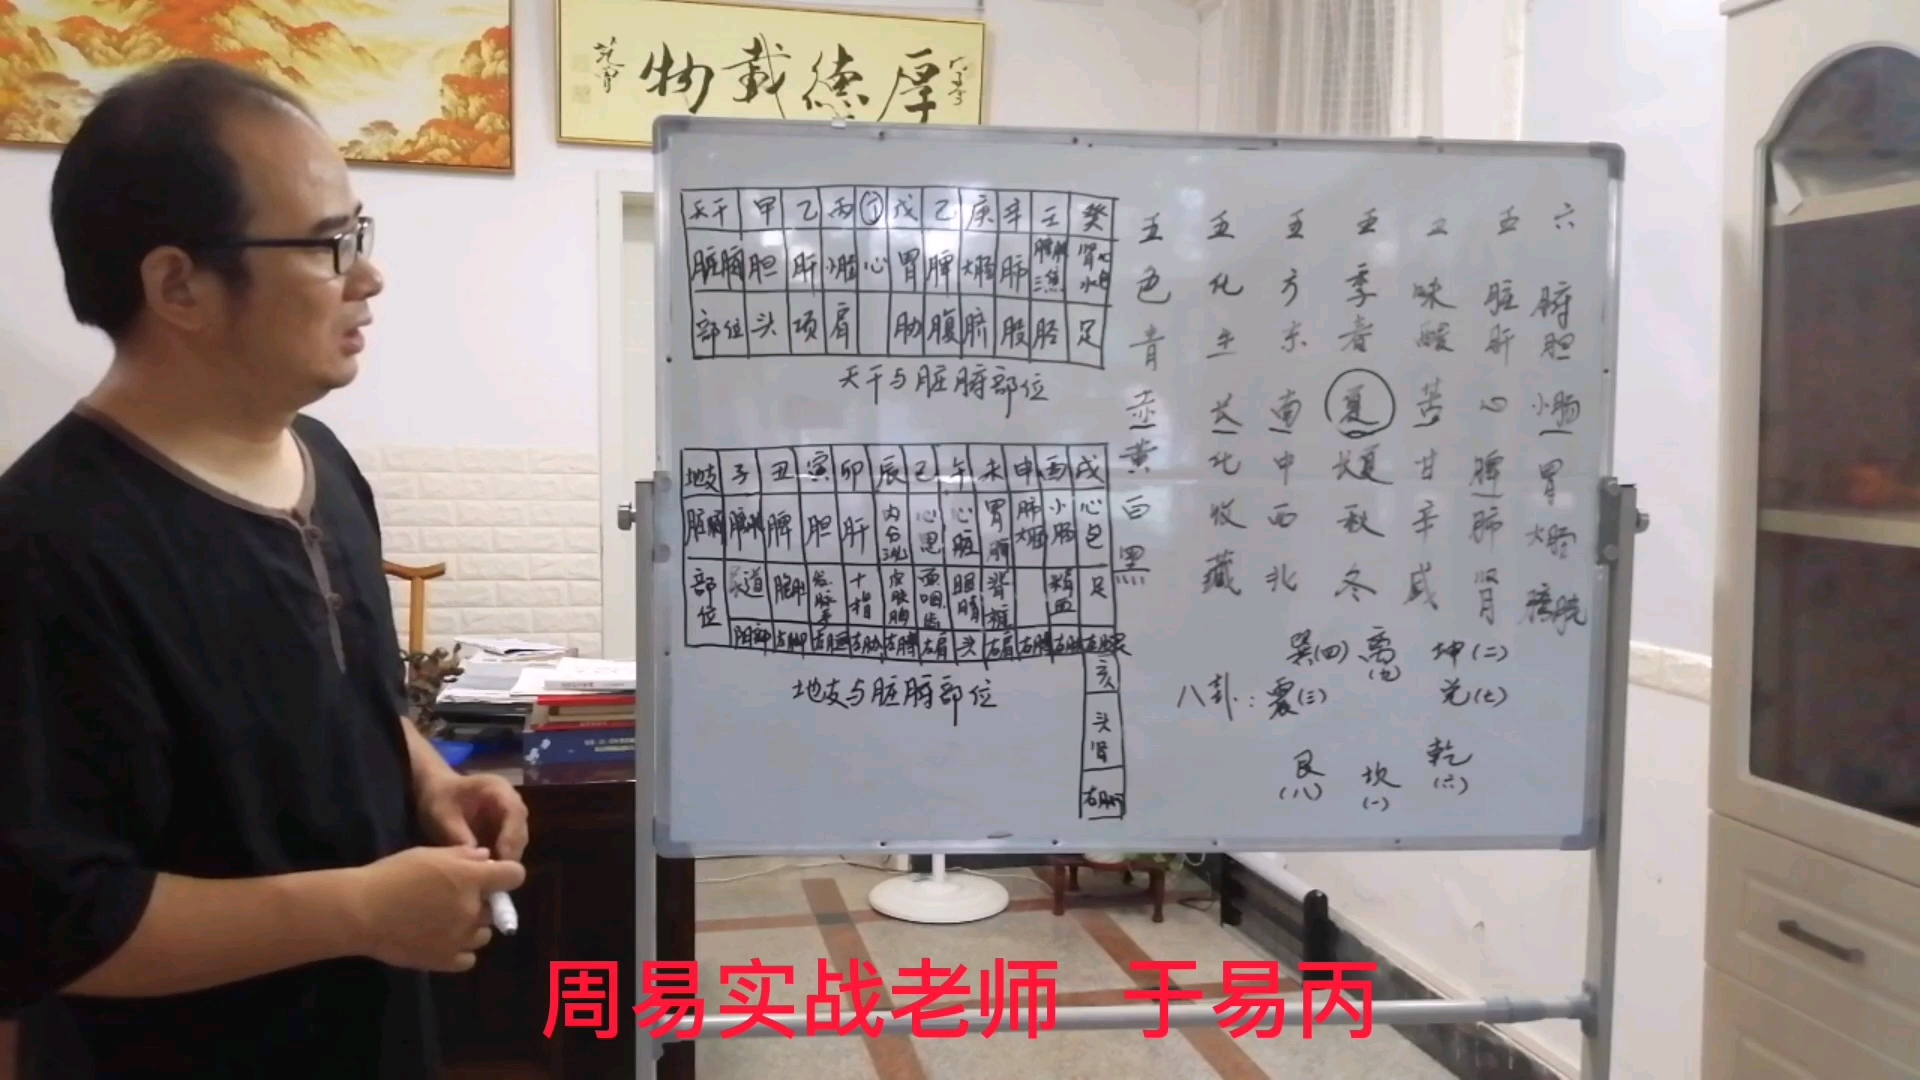 物載德厚
天干 甲 乙 丙 丁 戊 乙 庚 辛 壬 癸
脏腑 胆 肝 小肠 心 胃 脾 大肠 肺 膀胱三焦
部位 头 项 肩 肋 腹 脐 股 胫 足
天干与脏腑部位
地支 子 丑 寅 卯 辰 巳 午 未 申 酉 戌
脾 胆 肝 内分泌 心思 心脏 胃 肺大肠 小肠 心包
部位 十指 眼睛 精血 足
阴部 左脚 左肩 头 右肩
亥
头肾
地支与脏腑部位
五 五 五 五 五 五 六
色 化 方 季 味 脏 腑
青 生 东 春 酸 肝 胆
赤 长 南 夏 苦 心 小肠
黄 化 中 长夏 甘 脾 胃
白 收 西 秋 辛 肺 大肠
黑 藏 北 冬 咸 肾 膀胱
巽(四) 离(九) 坤(二)
八卦: 震(三) 兑(七)
艮(八) 坎(一) 乾(六)
周易实战老师 于易丙